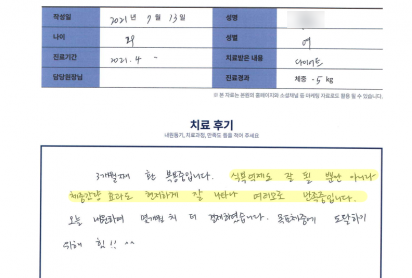 작성일 2025년 9월 13일 성명
나이 성별 여
진료기간 2025. 4 ~ 치료받은 내용 다이어트
담당원장님 진료경과 체중 -5 kg
※ 본 자료는 본원의 홈페이지와 소셜채널 등 마케팅 자료로도 활용 될 수 있습니다.
치료 후기
내원동기, 치료과정, 만족도 등을 적어 주세요
3개월째 환 복용중입니다. 식욕억제도 잘 될 뿐만 아니라
체중감량 효과도 현저하게 잘 나타나 여러모로 만족중입니다.
오늘 내원하여 몇개월 치 더 결제하였습니다. 목표체중에 도달하기
위해 힛!! ^^